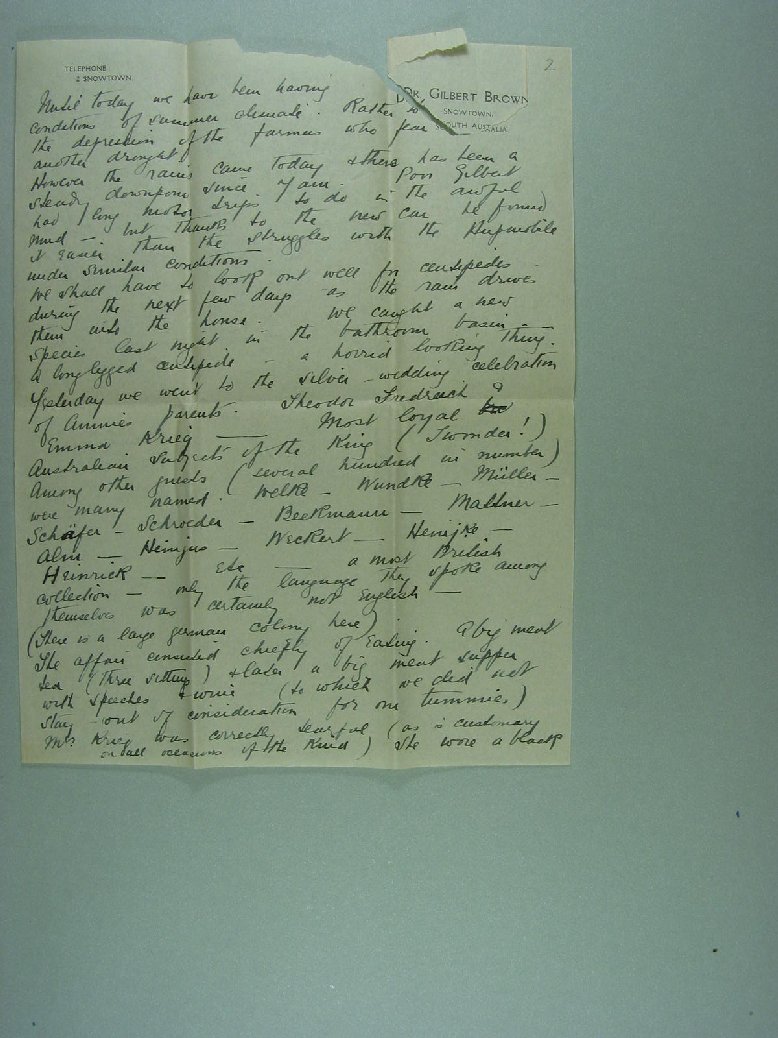 2
TELEPHONE
2 SNOWTOWN.
DR. GILBERT BROWN
SNOWTOWN,
SOUTH AUSTRALIA
Until today we have been having
conditions of summer climate. Rather to
the depression of the farmers who fear
another drought.
However the rains came today & there has been a
steady downpour since 7 am. Poor Gilbert
had 1 long motor trips to do in the awful
mud — but thanks to the new car he found
it easier than the struggles with the Hupmobile
under similar conditions.
We shall have to look out well for centipedes
during the next few days as the rain drives
them into the house. We caught a new
species last night in the bathroom basin —
A longlegged centipede — a horrid looking thing.
Yesterday we went to the silver-wedding celebration
of Annie's parents. Theodor Friedrich &
Emma Krieg — Most loyal
Australian subjects of the King (I wonder!)
Among other guests (several hundred in number)
were many named. Welke — Wundke — Müller —
Schäfer — Schroeder — Beekmann — Mattner —
Alm — Heinjus — Weckert — Henijke —
Heinrick — Etc — a most British
collection — only the language they spoke among
themselves was certainly not English —
(There is a large german colony here).
The affair consisted chiefly of Eating. A big meat
tea (three sittings) & later a big meat supper
with speeches & wine (to which we did not
stay — out of consideration for our tummies)
Mrs Krieg was correctly tearful (as is customary
on all occasions of the kind) She wore a black